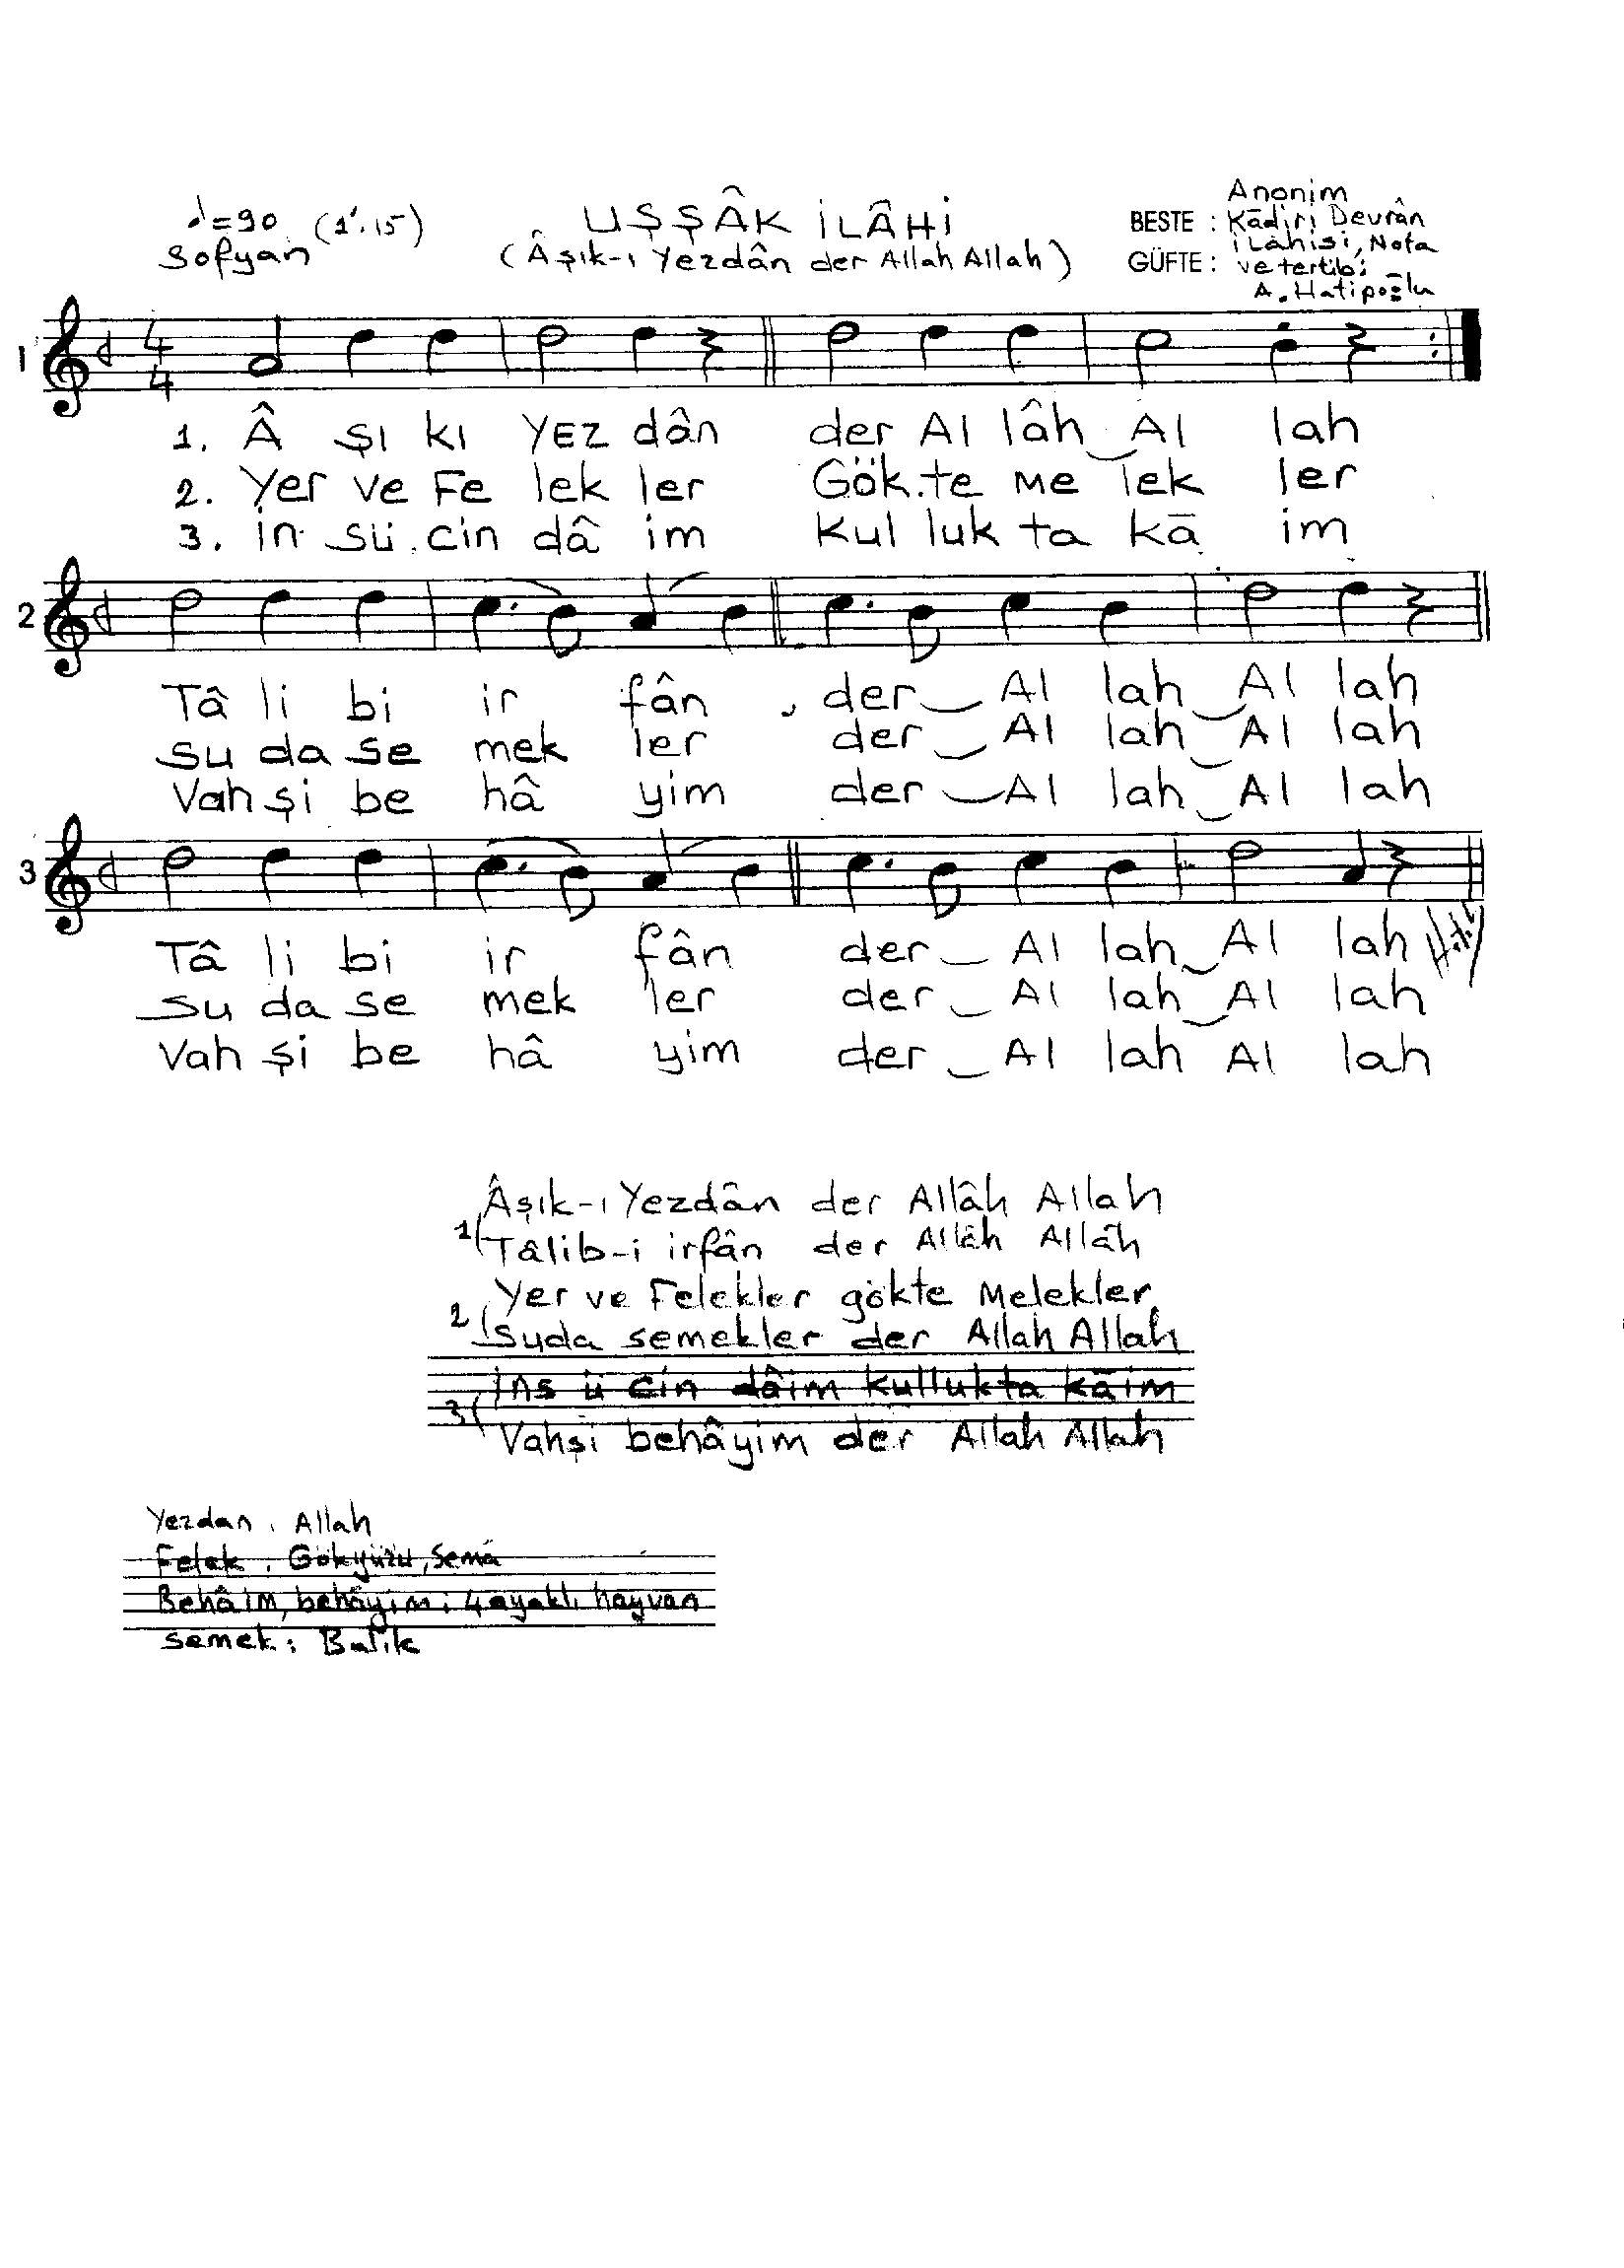 ♩=90 (1'.15)
Sofyan
UŞŞÂK İLÂHİ
(Âşık-ı Yezdân der Allah Allah)
Anonim
BESTE : Kādiri Devrân
İlâhisi, Nota
GÜFTE : ve tertibi
A. Hatipoğlu
1
4
4
1. Â şı kı YEZ dân der Al lâh Al lah
2. Yer ve Fe lek ler Gök.te Me lek ler
3. in sü cin dâ im Kul luk ta kā im
2
Tâ li bi ir fân der Al lah Al lah
su da se mek ler der Al lah Al lah
Vah şi be hâ yim der Al lah Al lah
3
Tâ li bi ir fân der Al lah Al lah
su da se mek ler der Al lah Al lah
Vah şi be hâ yim der Al lah Al lah
Âşık-ı Yezdân der Allâh Allah
1( Tâlib-i irfân der Allāh Allāh
Yer ve Felekler gökte Melekler
2( Suda semekler der Allah Allah
İns ü cin dâim kullukta kāim
3( Vahşi behâyim der Allah Allah
Yezdan : Allah
Felek : Gökyüzü, semā
Behâim, behâyim : 4 ayaklı hayvan
semek : Balık